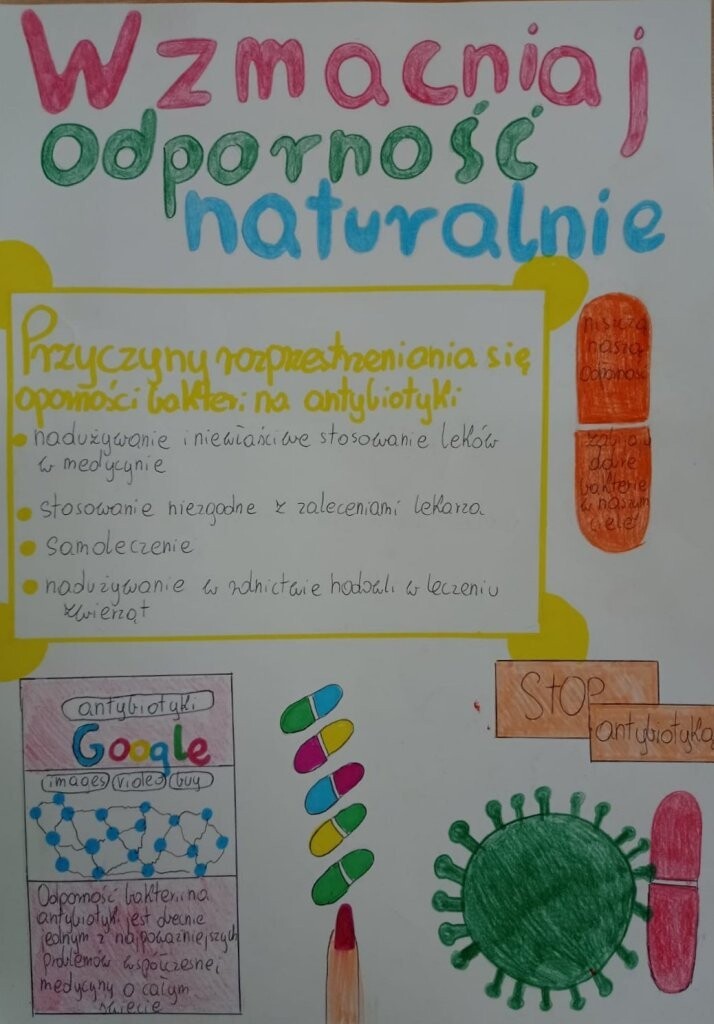 Wzmacniaj
odporność
naturalnie
Przyczyny rozprzestrzeniania się
oporności bakterii na antybiotyki
nadużywanie i niewłaściwe stosowanie leków
w medycynie
stosowanie niezgodne z zaleceniami lekarza
samoleczenie
nadużywanie w rolnictwie hodowli w leczeniu
zwierząt
niszczą
naszą
odporność
zabijają
dobre
bakterie
w naszym
ciele!
STOP
antybiotyką
antybiotyki
Google
images video buy
Odporność bakterii na
antybiotyk jest obecnie
jednym z najpoważniejszych
problemów współczesnej
medycyny o całym
świecie